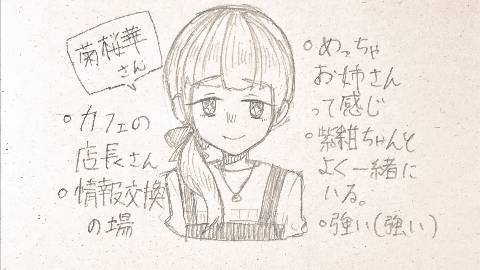 菊桜華
さん
○カフェの
店長さん
○情報交換
の場
○めっちゃ
お姉さん
って感じ
○紫紺ちゃんと
よく一緒に
いる。
○強い(強い)